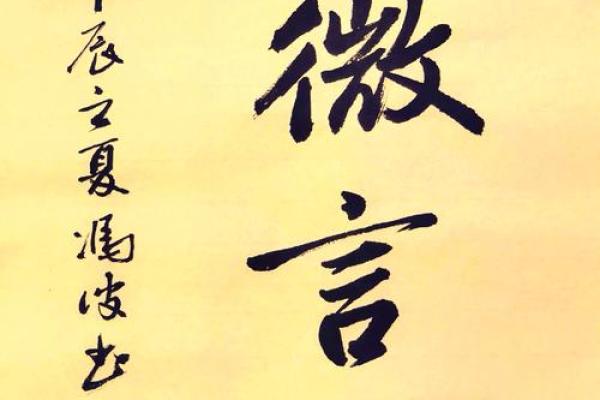 微言
辰立夏馮波书